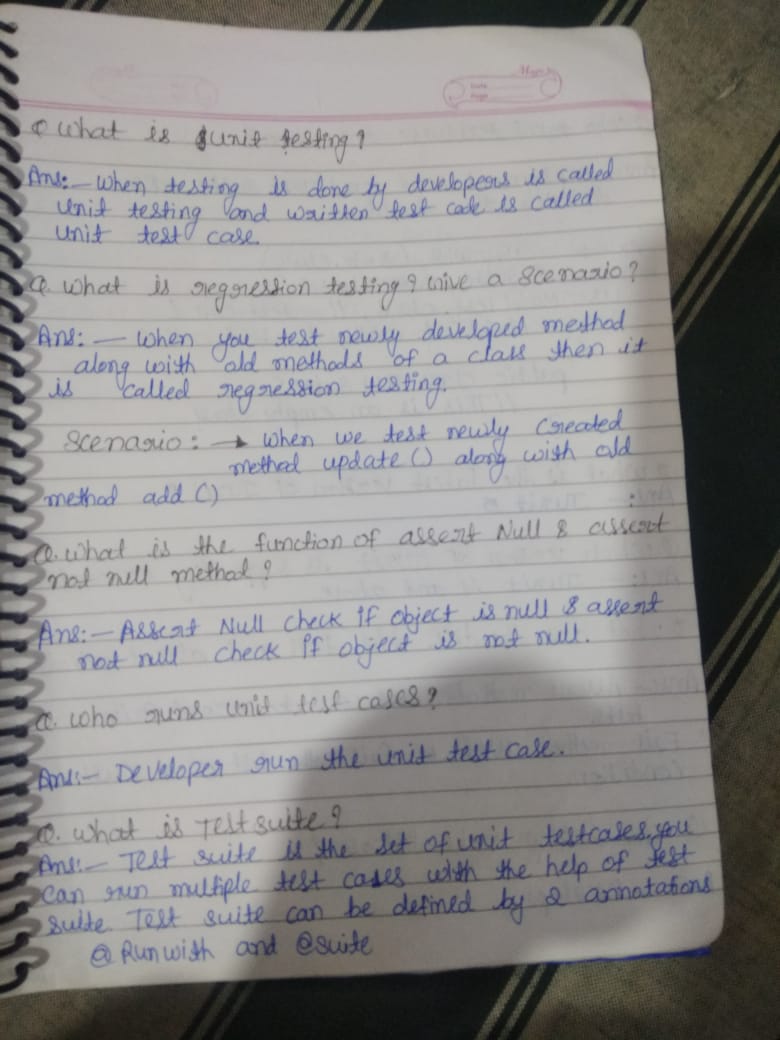 Q What is unit testing?
Ans:- When testing is done by developers is called
unit testing and written test code is called
unit test case.
Q. What is regression testing? Give a Scenario?
Ans: - When you test newly developed method
along with old methods of a class then it
is called regression testing.
Scenario: → When we test newly created
method update () along with old
method add ()
Q. What is the function of assert Null & assert
not null method?
Ans:- Assert Null check if object is null & assert
not null check if object is not null.
Q. Who runs unit test cases?
Ans:- Developer run the unit test case.
Q. What is Test suite?
Ans:- Test suite is the set of unit testcases, you
can run multiple test cases with the help of test
suite. Test suite can be defined by 2 annotations
@Runwith and @suite